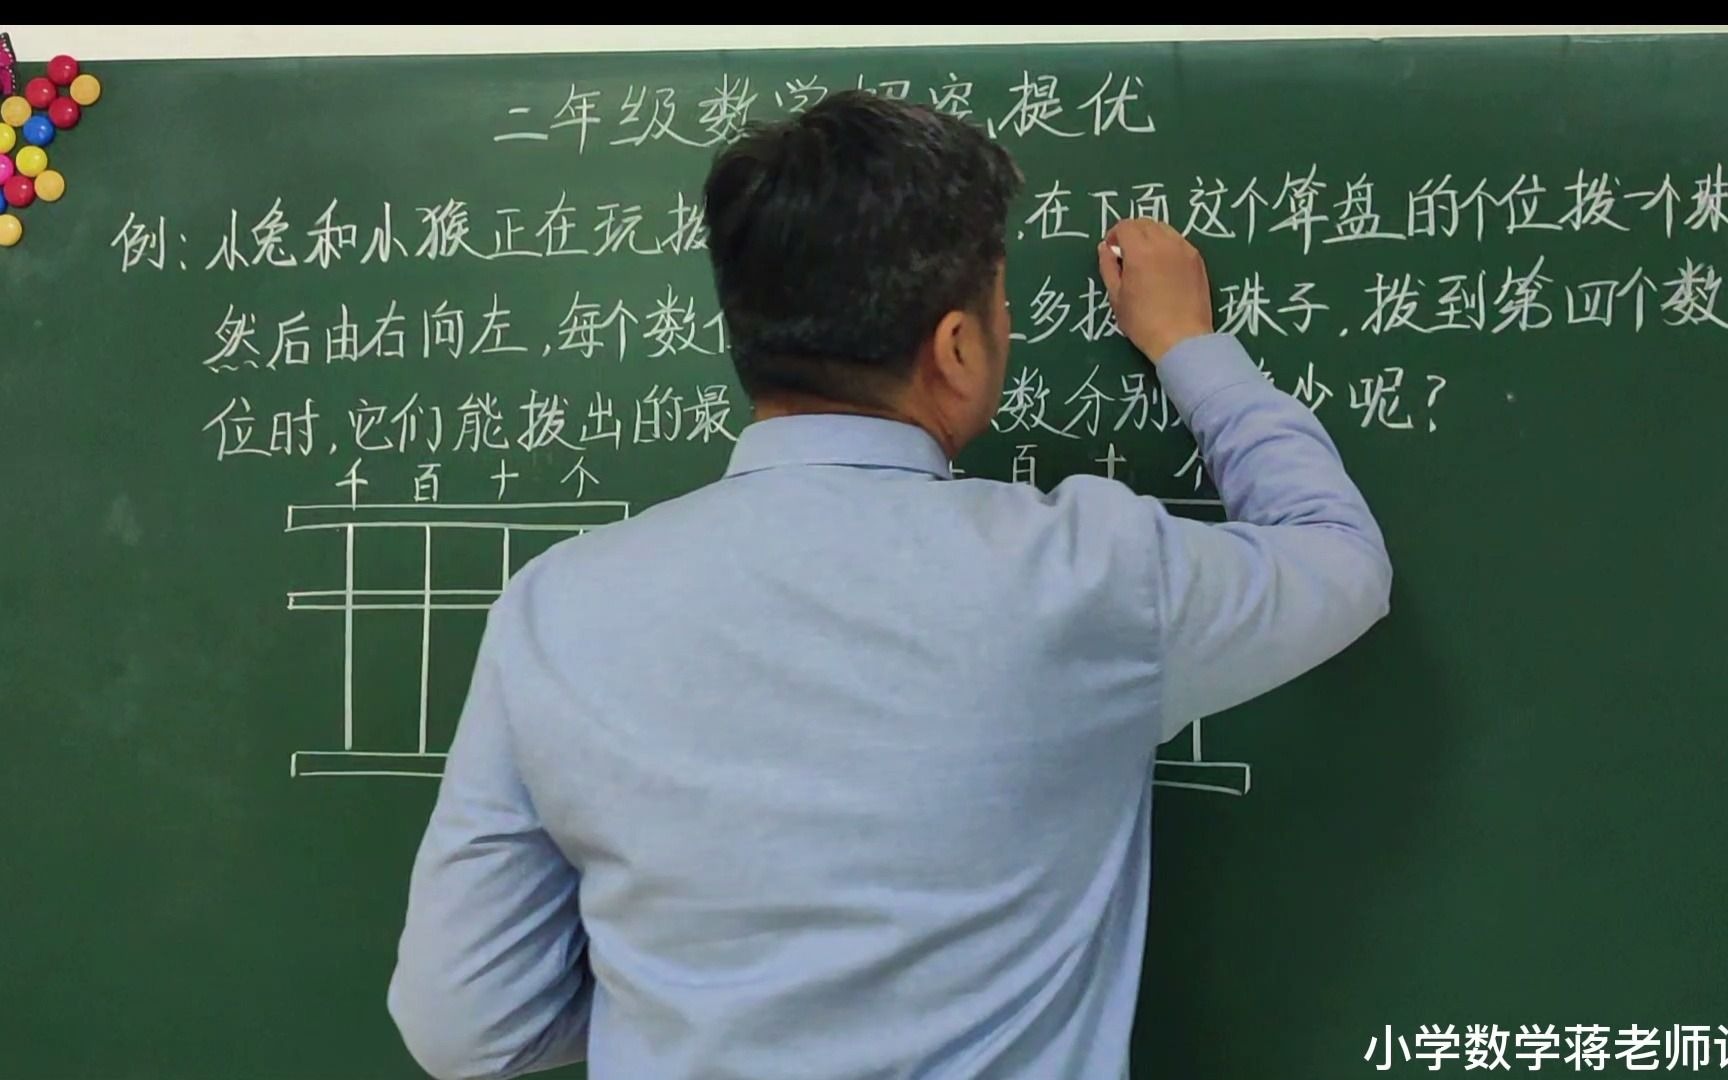 二年级数学 提优
例：小兔和小猴正在玩拨 ，在下面这个算盘的个位拨一个珠
然后由右向左，每个数 多拨 珠子，拨到第四个数
位时，它们能拨出的最 数分别 少呢？
千 百 十 个
百 十 个
小学数学蒋老师